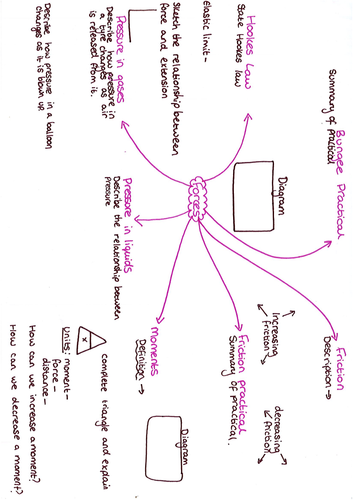 Bungee Practical
Summary of practical
Friction
Description →
Increasing
Friction
decreasing
Friction
Friction practical
Summary of practical.
Diagram
Hookes Law
State Hookes law
Elastic limit -
Sketch the relationship between
force and extension
Forces
Moments
Definition →
Diagram
x
complete triangle and explain
Units: moment -
force -
distance -
How can we increase a moment?
How can we decrease a moment?
Pressure in liquids
Describe the relationship between
Pressure
Pressure in gases
Describe how pressure in
a tyre changes as air
is released from it.
Describe how pressure in a balloon
changes as it is blown up